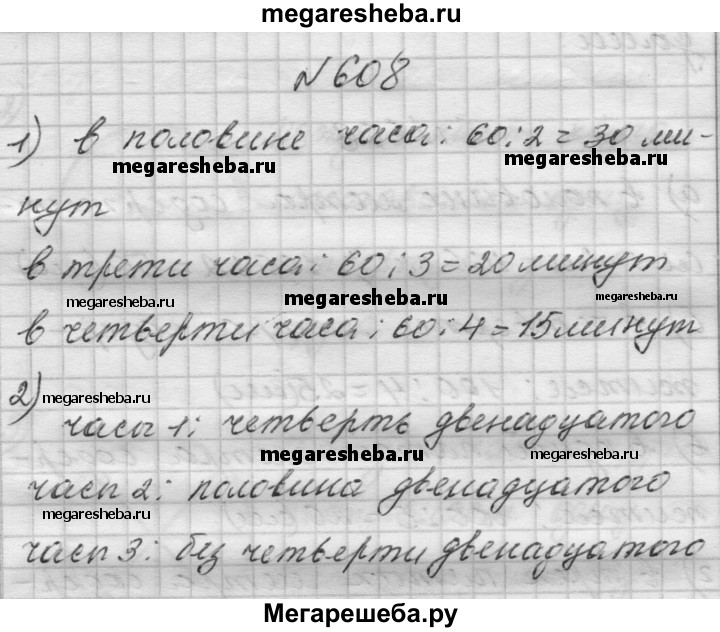 megaresheba.ru
N 608
1) в половине часа: 60:2=30 ми-
megaresheba.ru megaresheba.ru
нут
в трети часа: 60:3=20 минут
megaresheba.ru megaresheba.ru megaresheba.ru
в четверти часа: 60:4=15 минут
2) megaresheba.ru megaresheba.ru
часы 1: четверть двенадцатого
megaresheba.ru megaresheba.ru
часы 2: половина двенадцатого
megaresheba.ru
часы 3: без четверти двенадцатого
Мегарешеба.ру